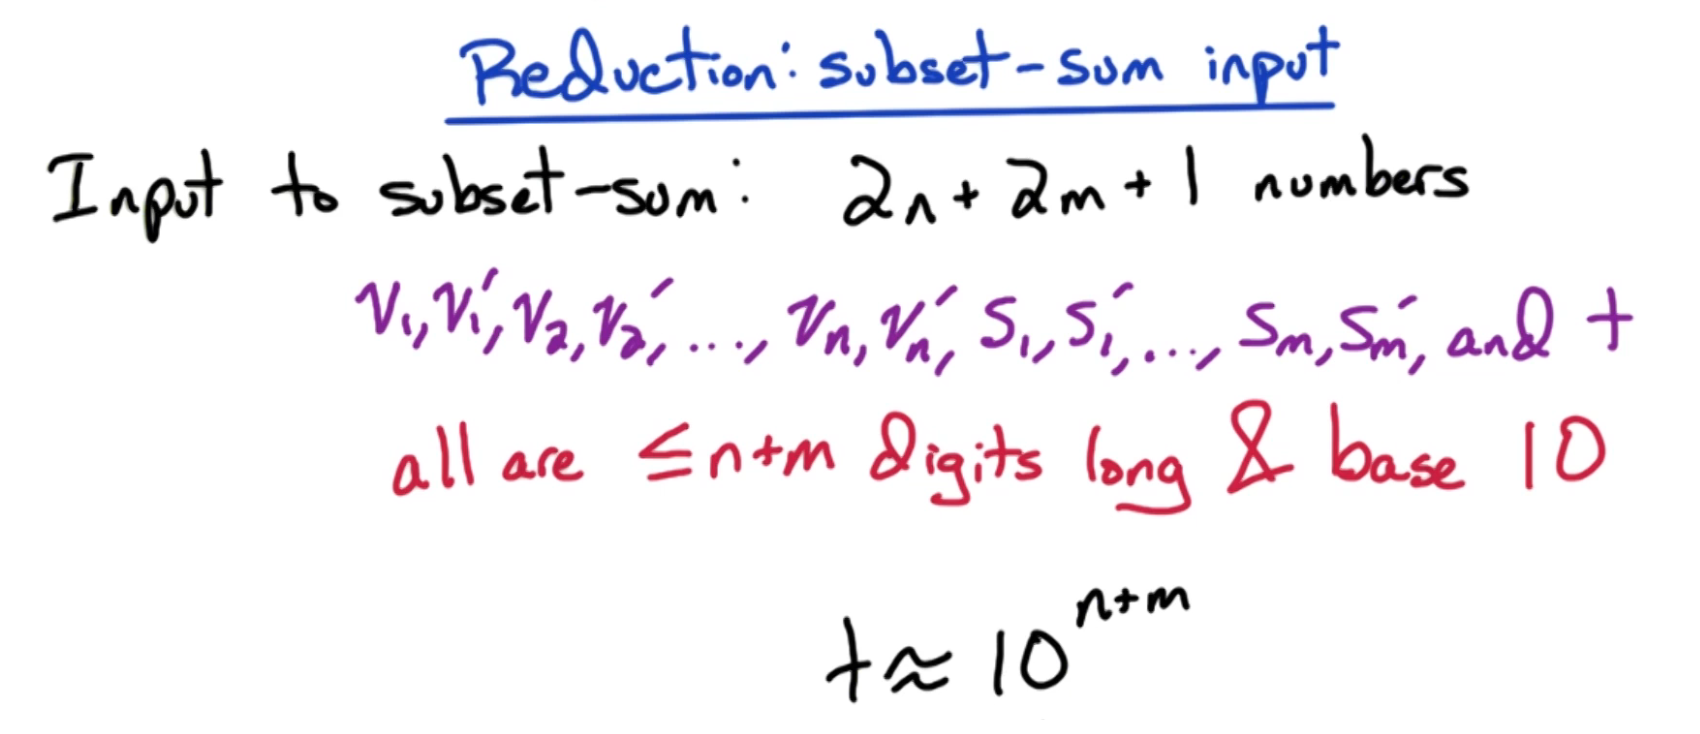 Reduction: subset-sum input
Input to subset-sum: 2n + 2m + 1 numbers
v₁, v₁′, v₂, v₂′, ..., vₙ, vₙ′, s₁, s₁′, ..., sₘ, sₘ′, and t
all are ≤ n+m digits long & base 10
t ≈ 10ⁿ⁺ᵐ